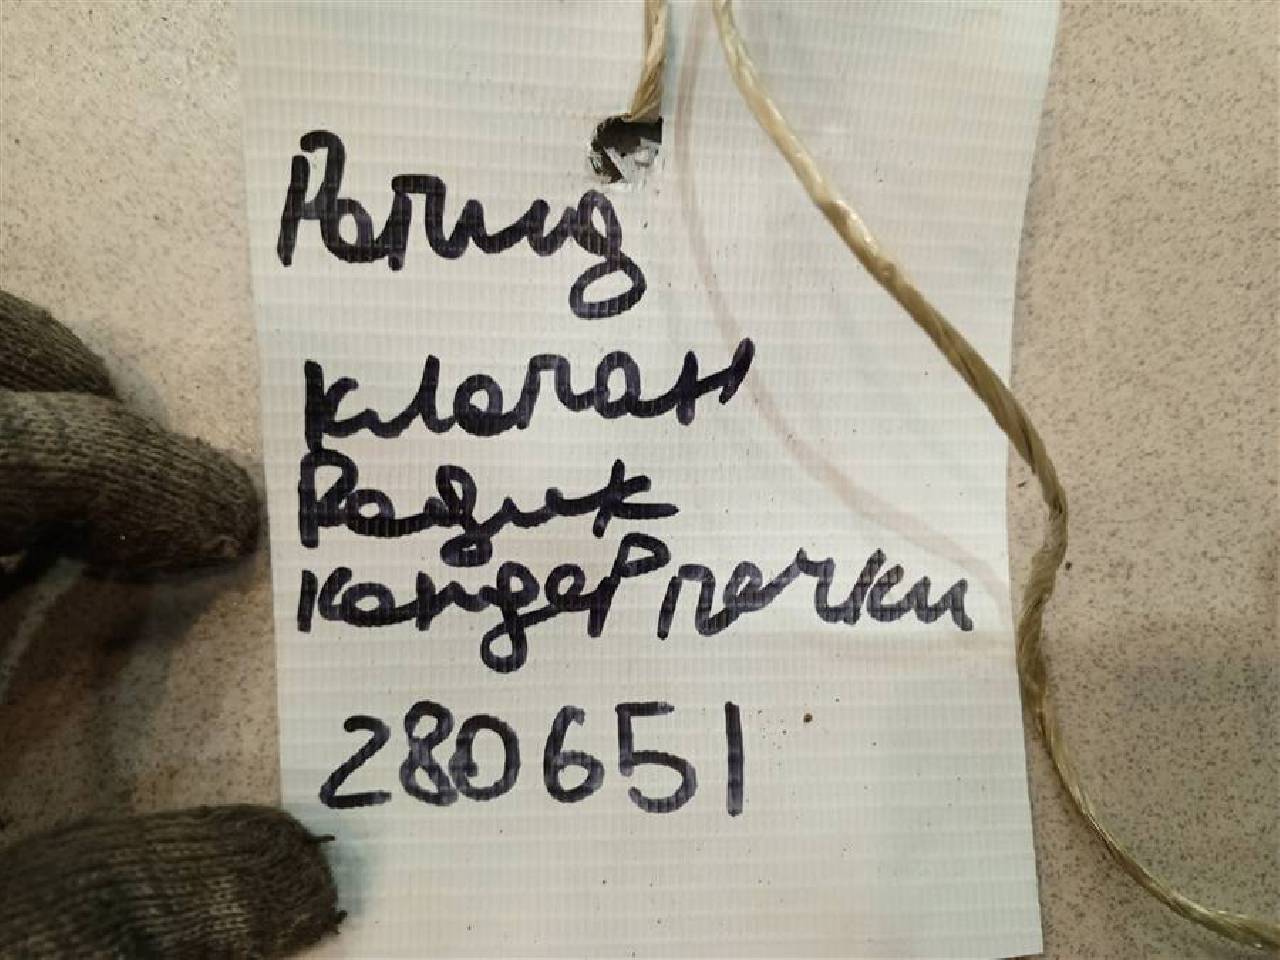 Рапид
клапан
Радик
кондер печки
280651